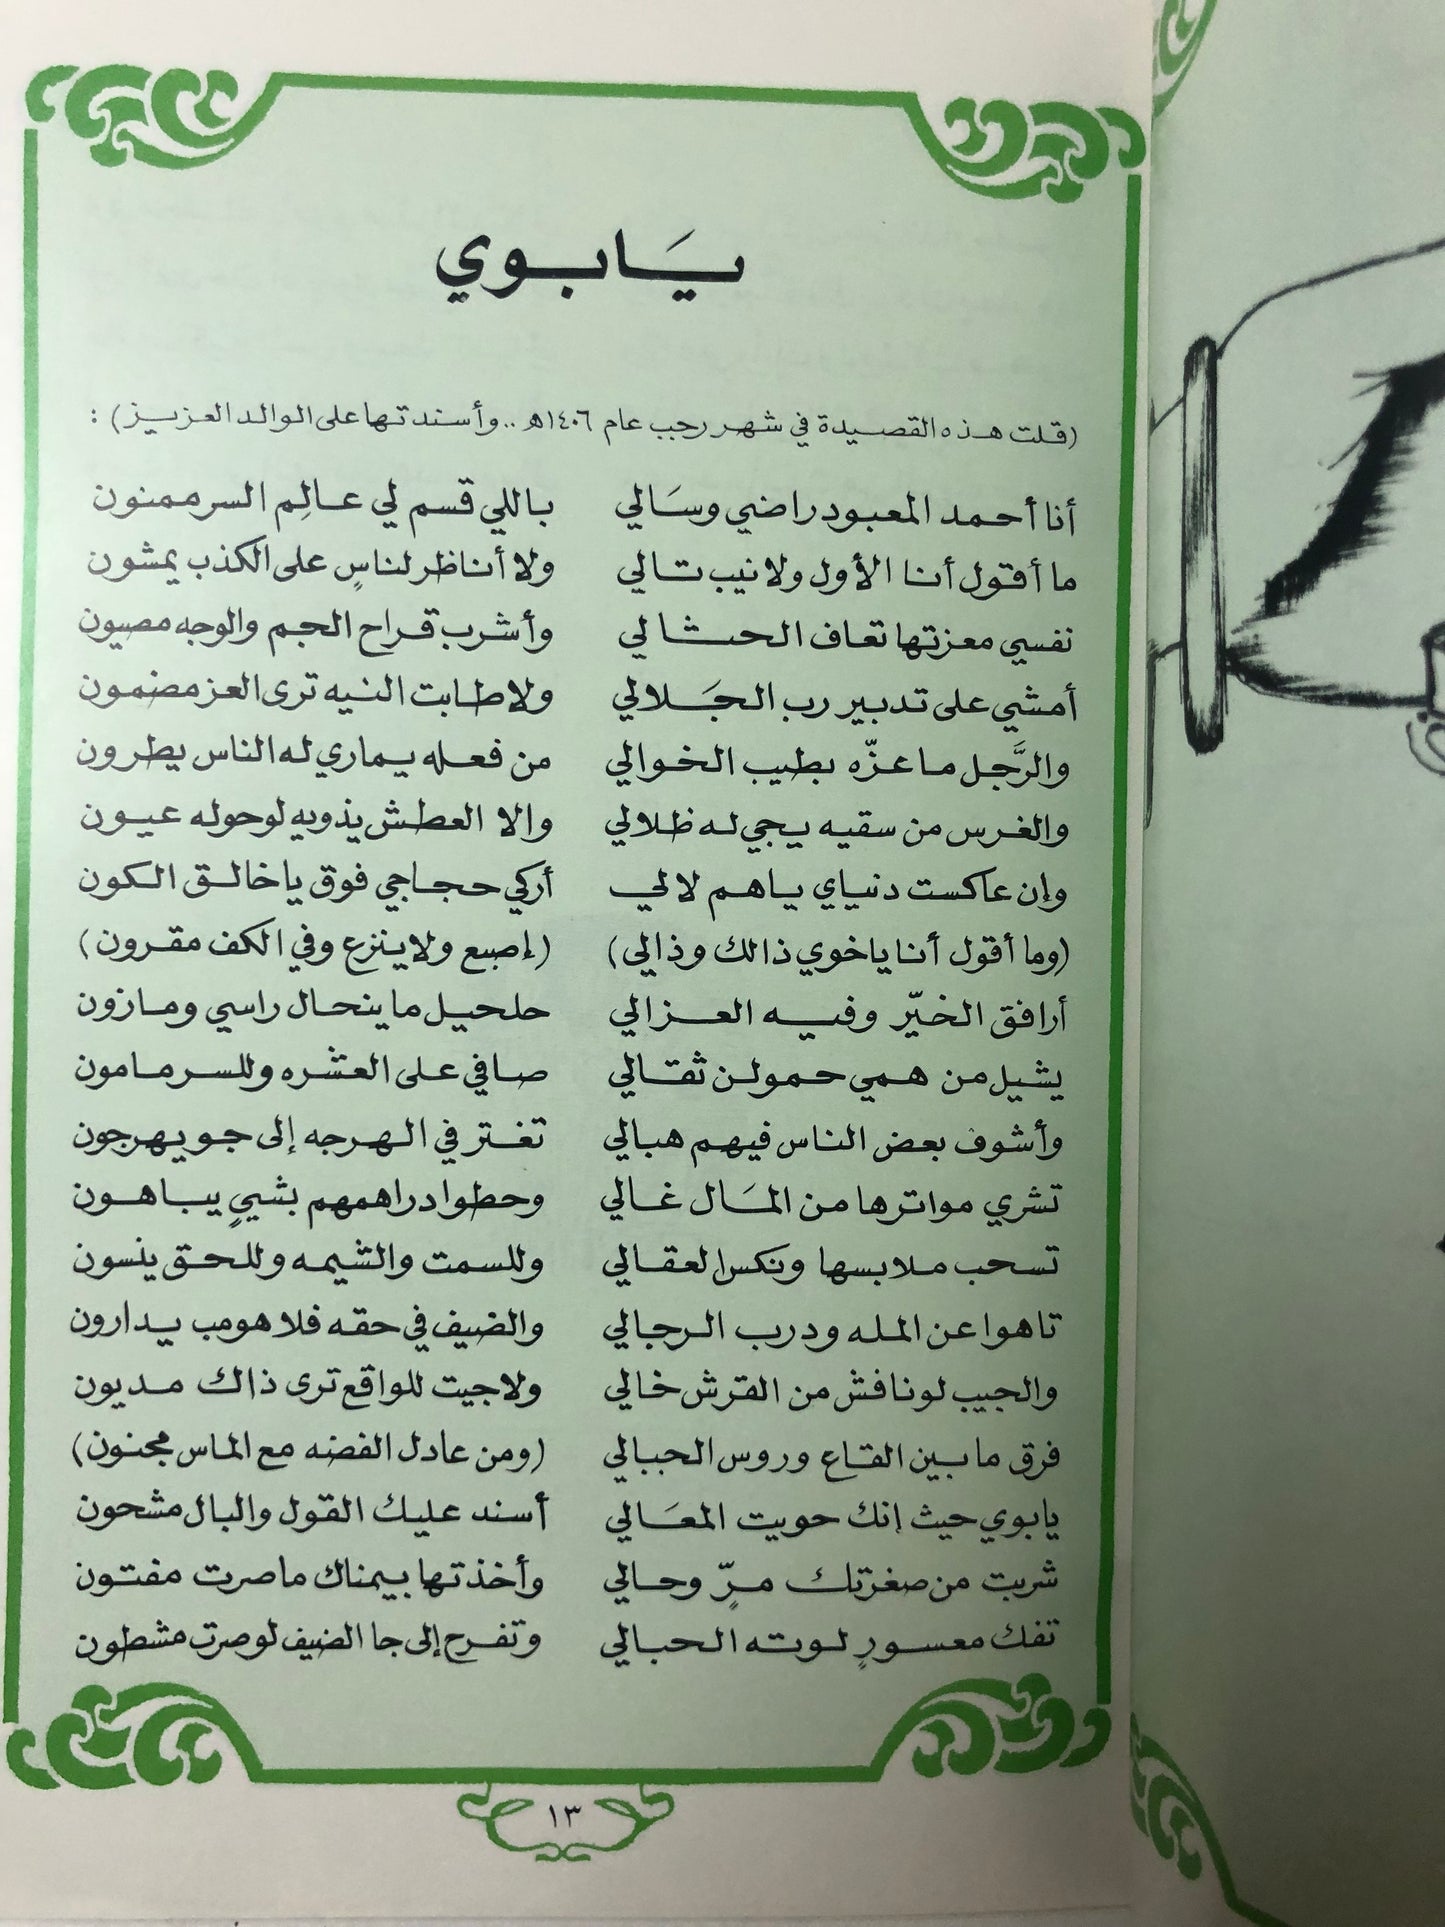 يَابوي
(قلت هذه القصيدة في شهر رجب عام ١٤٠٦هـ .. وأسندتها على الوالد العزيز) :
أنا أحمد المعبود راضي وسَالي باللي قسم لي عالِم السر ممنون
ما أقول أنا الأول ولا نيب تالي ولا أناظر لناسٍ على الكذب يمشون
نفسي معزتها تعاف الحثالي وأشرب قراح الجم والوجه مصيون
أمشي على تدبير رب الجَلالي ولا طابت النيه ترى العز مضمون
والرَّجل ما عزّه بطيب الخوالي من فعله يماري له الناس يطرون
والغرس من سقيه يجي له ظلالي والا العطش يذويه لو حوله عيون
وإن عاكست دنياي ياهم لالي أركي حجاجي فوق يا خالق الكون
(وما أقول أنا ياخوي ذالك وذالي) (إصبع ولا ينزع وفي الكف مقرون)
أرافق الخيّر وفيه العزالي حلحيل ما ينحال راسي ومازون
يشيل من همي حمولن ثقالي صافي على العشره وللسر مامون
وأشوف بعض الناس فيهم هبالي تغتر في الهرجه إلى جو يهرجون
تشري مواترها من المَال غالي وحطوا دراهمهم بشيٍ يباهون
تسحب ملابسها ونكس العقالي وللسمت والشيمه وللحق ينسون
تاهوا عن المله ودرب الرجالي والضيف في حقه فلا هومب يدارون
والجيب لو نافش من القرش خالي ولا جيت للواقع ترى ذاك مديون
فرق ما بين القاع وروس الجبالي (ومن عادل الفضه مع الماس مجنون)
يابوي حيث إنك حويت المعَالي أسند عليك القول والبال مشحون
شربت من صغرتك مرٍّ وحالي وأخذتها بيمناك ما صرت مفتون
تفك معسورٍ لوته الحبالي وتفرح إلى جا الضيف لو صرت مشطون
١٣